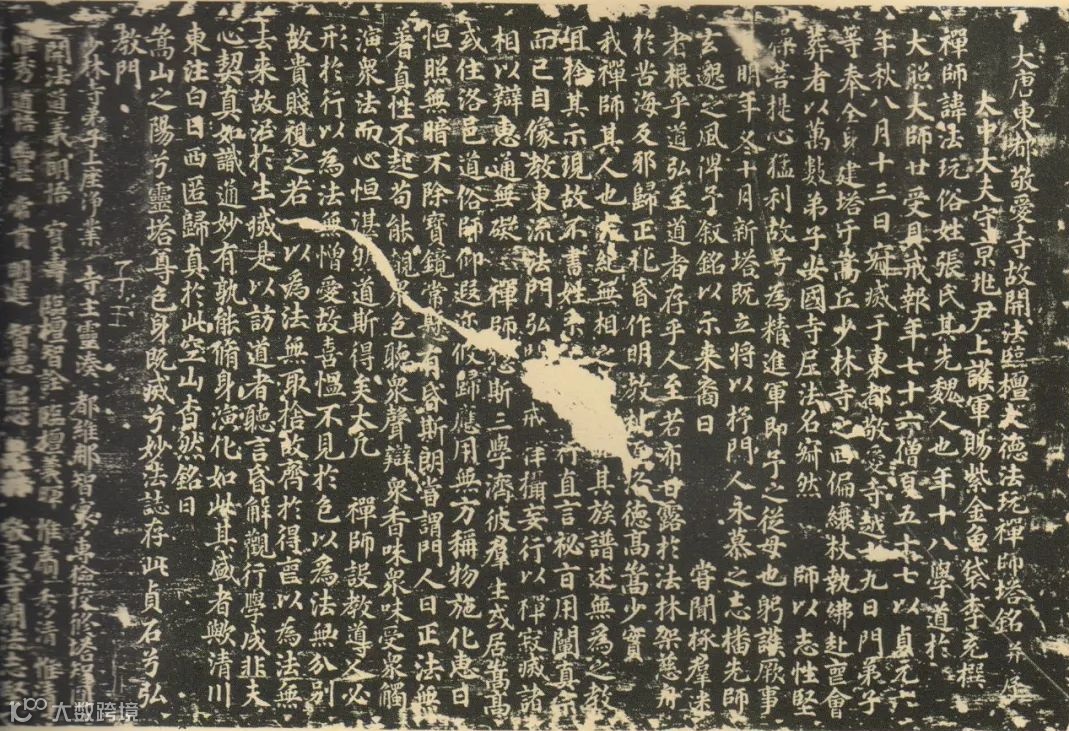 大唐東都敬愛寺故開法臨壇大德法玩禪師塔銘并序
大中大夫守京兆尹上護軍賜紫金魚袋李充撰
禪師諱法玩俗姓張氏其先魏人也年十八學道於
大照大師廿受具戒報年七十六僧夏五十七以貞元六
年秋八月十三日寂滅于東都敬愛寺越十九日門弟子
等奉全身建塔于嵩丘少林寺之西偏縗杖執紼赴會會
葬者以萬數弟子安國寺尼法名寂然 師以志性堅
菩提心猛利故号為精進軍即予之從母也躬護厥事
明年冬十月新塔既立將以抒門人永慕之志播先師
玄邈之風渾予敘銘以示来裔曰 嘗聞拯羣迷
者根乎道弘至道者存乎人至若布甘露於法林架慈舟
於苦海反邪歸正化昏作明教之德高嵩少實
我禪師其人也大絶無相之其族譜述無為之教
且捨其示現故不書姓而
而已自像教東流法門弘戒行直言秘旨用闡真宗
相以辯惠通無礙禪師斯三學濟彼羣生或居嵩高
或住洛邑道俗師仰遐迩攸歸應用無方稱物施化惠日
恒照無暗不除寶鏡常懸有昏斯朗嘗謂門人曰正法無
著真性不起苟能覩衆色聽衆聲辯衆香味衆味受衆觸
演衆法而心恒湛然道斯得矣大凢 禪師設教導父必
形於行以為法無憎愛故喜愠不見於色以為法無分別
故貴賤視之若 以為法無取捨故齊於得喪以為法無
去来故泊於生滅是以訪道者聽言昏解觀行學成非夫
心契真如識通妙有孰能脩身演化如此其盛者歟清川
東注白日西匿歸真於此空山杳然銘曰
嵩山之陽兮靈塔尊色身既滅兮妙法誌存此貞石兮弘
教門
少林寺弟子上座淨業 寺主靈湊 都維那智 専檢校修塔
開法道義明悟 寶 臨壇智詮 臨壇 惟 秀清 惟
惟秀 道悟 常賁 明進 智惠
大数跨境